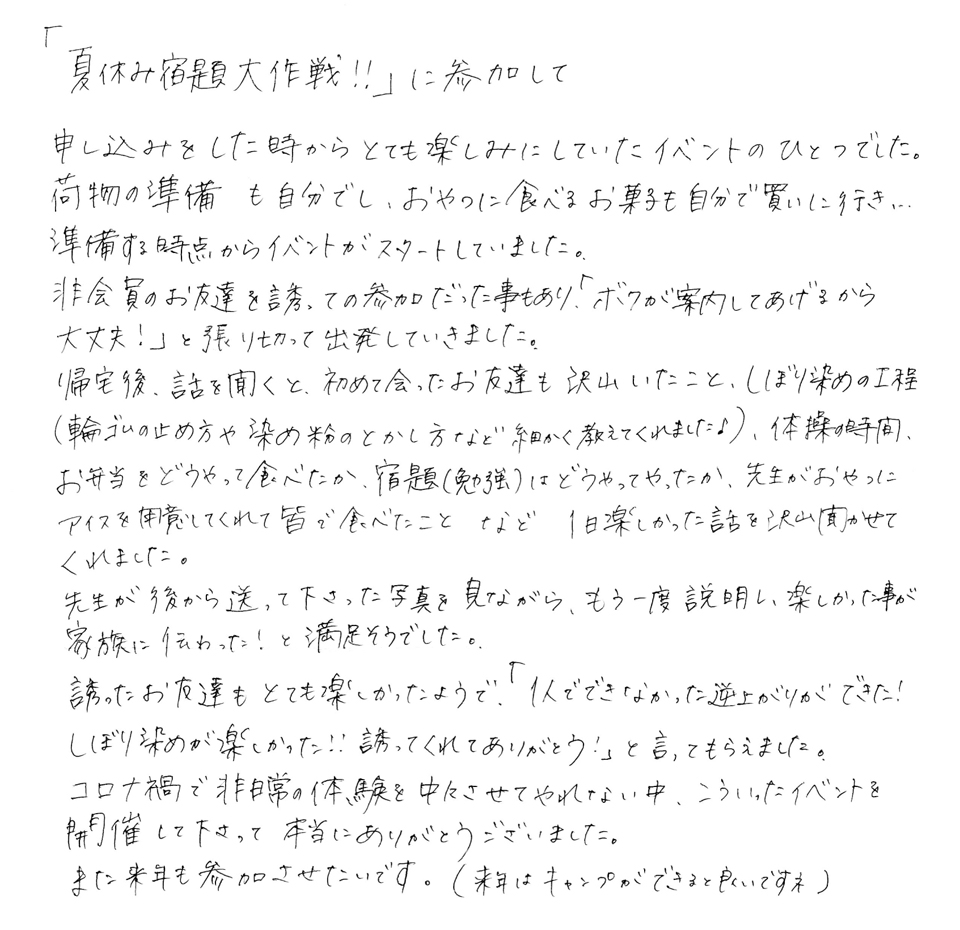 「夏休み宿題大作戦!!」に参加して
申し込みをした時からとても楽しみにしていたイベントのひとつでした。
荷物の準備 も自分でし、おやつに食べるお菓子も自分で買いに行き…
準備する時点からイベントがスタートしていました。
非会員のお友達を誘っての参加だった事もあり、「ボクが案内してあげるから
大丈夫!」と張り切って出発していきました。
帰宅後、話を聞くと、初めて会ったお友達も沢山いたこと、しぼり染めの工程
(輪ゴムの止め方や染め粉のとかし方など細かく教えてくれました♪)、体操の時間、
お弁当をどうやって食べたか、宿題(勉強)はどうやってやったか、先生がおやつに
アイスを用意してくれて皆で食べたこと など 1日楽しかった話を沢山聞かせて
くれました。
先生が後から送って下さった写真を見ながら、もう一度説明し、楽しかった事が
家族に伝わった!と満足そうでした。
誘ったお友達もとても楽しかったようで、「1人でできなかった逆上がりができた!
しぼり染めが楽しかった!!誘ってくれてありがとう!」と言ってもらえました。
コロナ禍で非日常の体験を中々させてやれない中、こういったイベントを
開催して下さって 本当にありがとうございました。
また来年も参加させたいです。(来年はキャンプができると良いですネ)